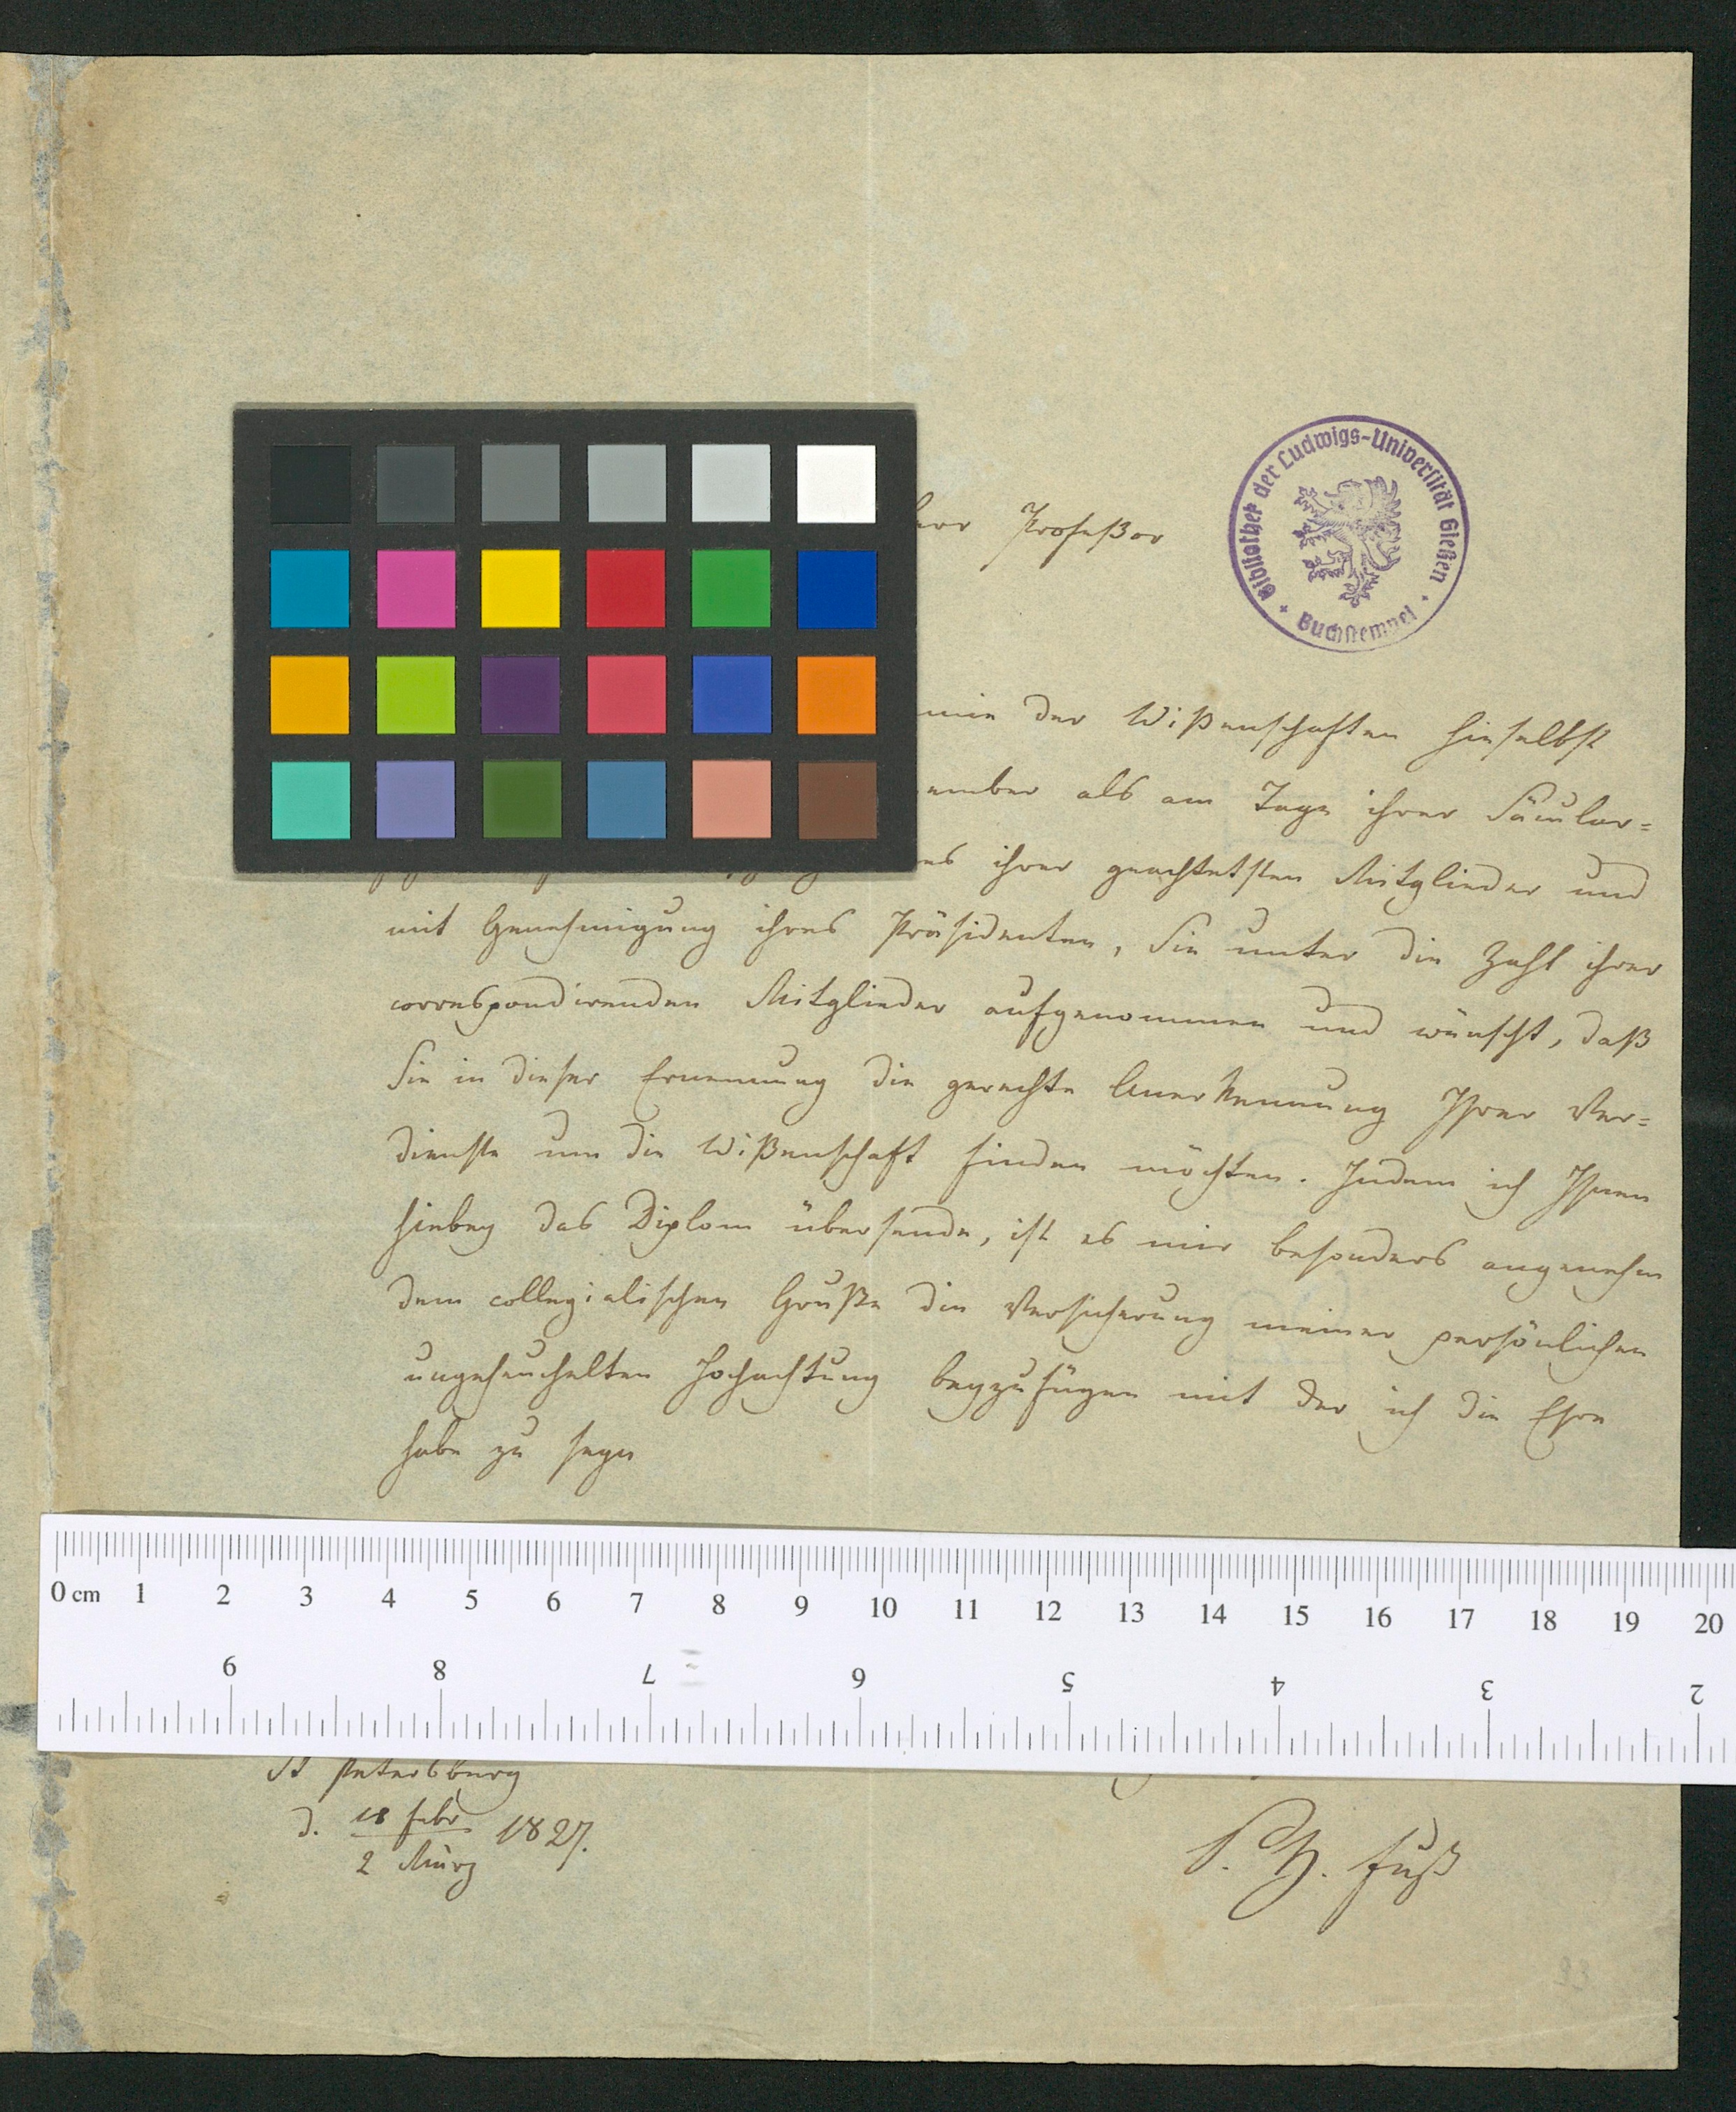 Professor
Bibliothek der Ludwigs-Universität Gießen
+ Buchstempel +
der Wißenschaften hieselbst
als am Tage ihrer Säcular=
ihrer geachtetsten Mitglieder und
mit Genehmigung ihres Präsidenten, Sie unter die Zahl ihrer
correspondirenden Mitglieder aufgenommen und wünscht, daß
Sie in dieser Ernennung die gerechte Anerkennung Ihrer Ver=
dienste um die Wißenschaft finden möchten. Indem ich Ihnen
hiebey das Diplom übersende, ist es mir besonders angenehm
dem collegialischen Gruße die Versicherung meiner persönlichen
ungeheuchelten Hochachtung beyzufügen mit der ich die Ehre
habe zu seyn
0 cm 1 2 3 4 5 6 7 8 9 10 11 12 13 14 15 16 17 18 19 20
9 8 7 6 5 4 3 2
St Petersburg
d. 18 Febr
2 März 1827.
P. H. Fuß
93